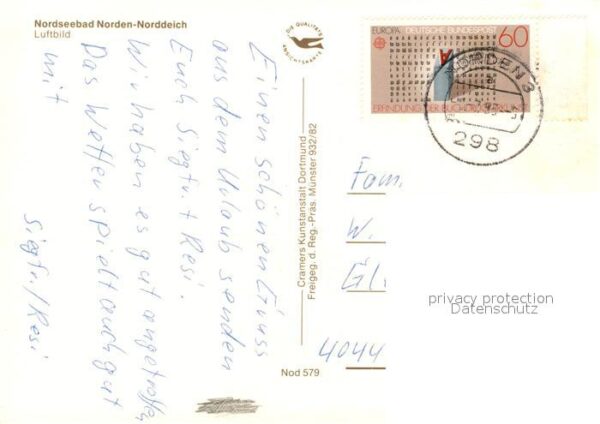 Nordseebad Norden-Norddeich
Luftbild
DIE QUALITÄTS
ANSICHTSKARTE
Einen schönen Gruss
aus dem Urlaub senden
Euch Siegfr. + Resi.
Wir haben es gut angetroffen,
Das Wetter spielt auch gut
mit
Siegfr./Resi
Cramers Kunstanstalt Dortmund
Freigeg. d. Reg.-Präs. Münster 932/82
Nod 579
EUROPA DEUTSCHE BUNDESPOST 60
ERFINDUNG DER BUCHDRUCKERKUNST
NORDEN 3
298
Fam.
W.
Gl
4044
privacy protection
Datenschutz